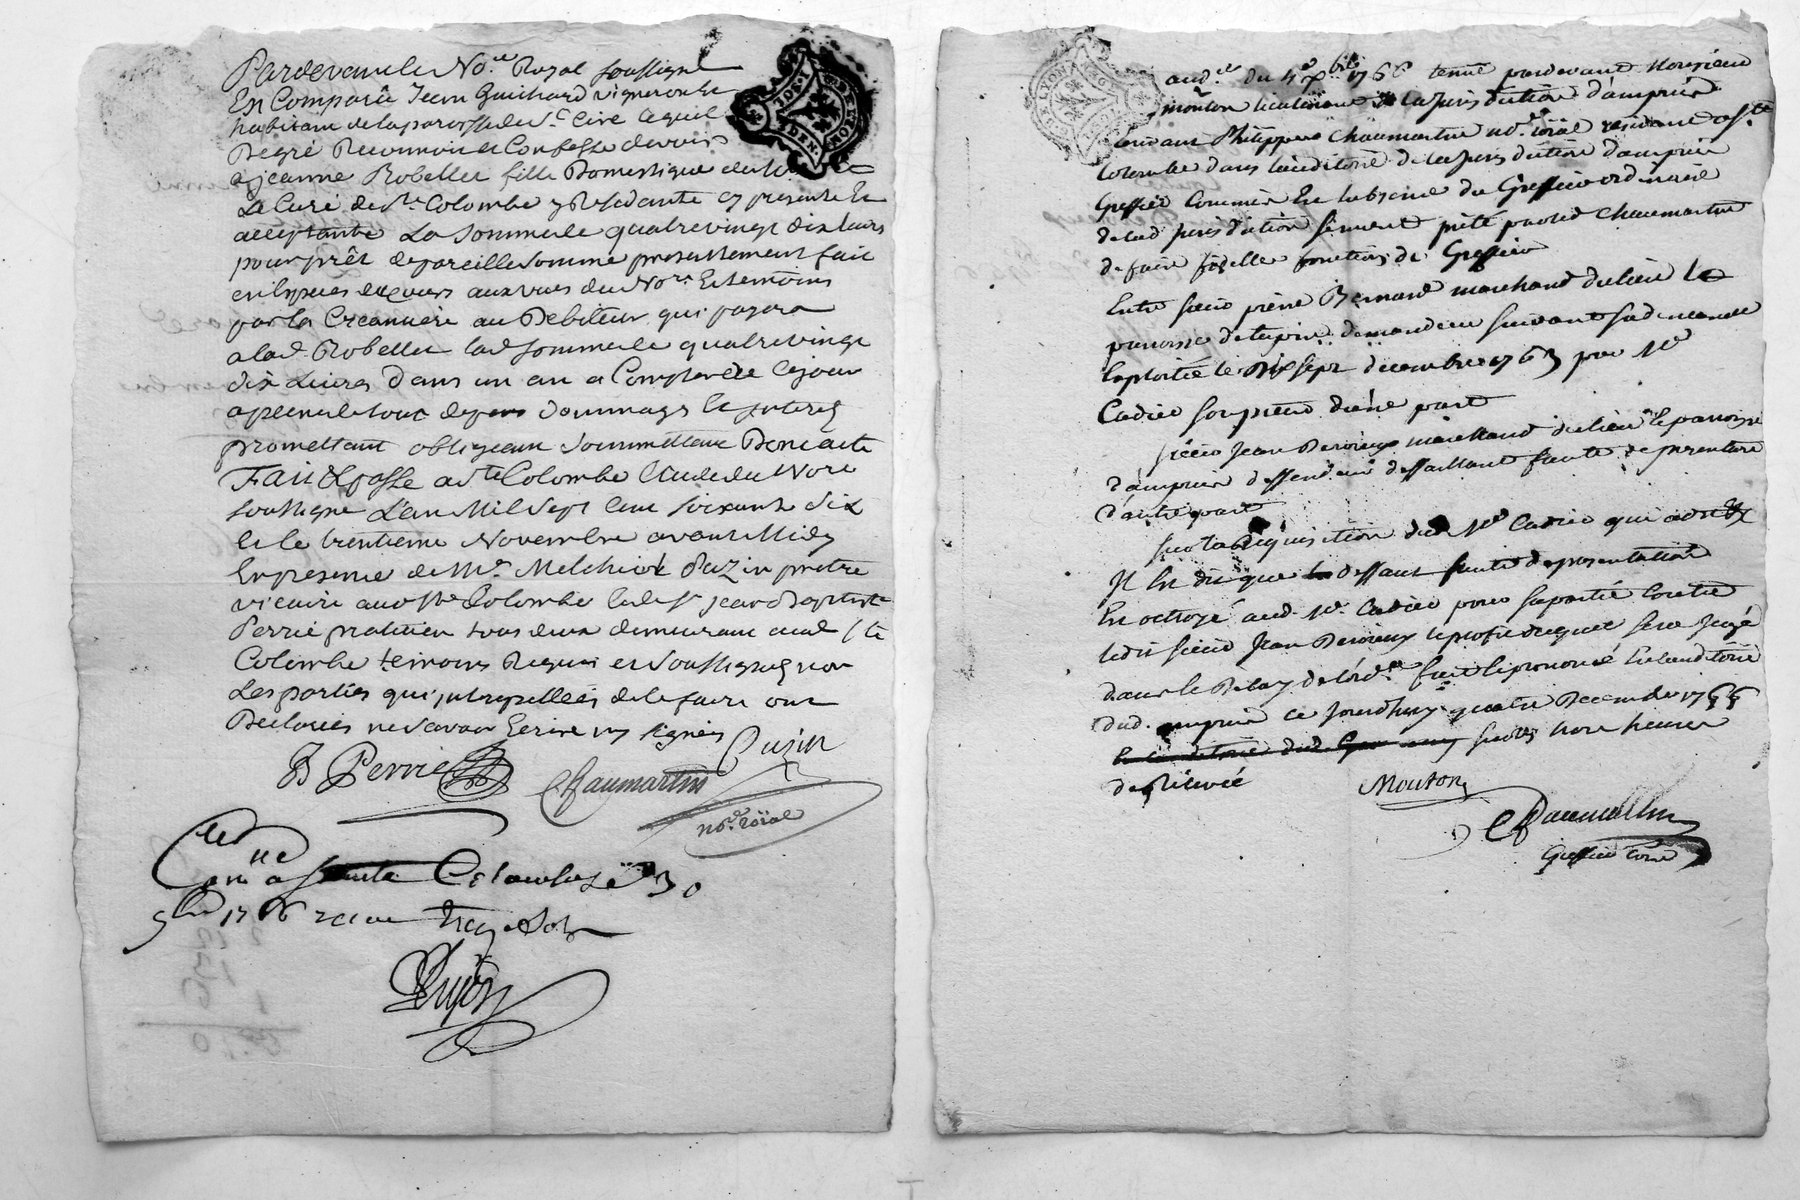 Pardevant le No.re Royal soussigné
En Comparû Jean Guichard vigneron
habitant de la paroisse de St. Cire lequel
Degré Reconnoit et Confesse devoir
a jeanne Robellet fille Domestique
Le Curé de Ste. Colombe y Residante cy presente Et
acceptante La Somme de quatrevingt dix livres
pour prêt de pareille Somme presentement fait
en Especes au vues du No.re Et temoins
par la Creanciere au Debiteur qui payera
a lad. Robellet lad. Somme de quatrevingt
dix Livres Dans un an a Compter de ce jour
a peine de tout depens dommages Et interets
promettant obligeant soummettant Dont acte
Fait & passé a Ste Colombe Etude du No.re
soussigné L'an Mil Sept Cent soixante six
Et le trentieme Novembre avant Midy
En presence de Mre. Melchior Pazin pretre
vicaire aud. Ste Colombe Et de Sr. jean Baptiste
Perrié praticien tous deux demeurant aud. Ste
Colombe temoins Requis et Soussignés non
Les parties qui interpellées de le faire ont
Declarées ne Savoir Ecrire ny signer
B Perrié
Chaumartin
no.re roïal
Cllé
a sainte Colombe le 30
9bre 1766 recu
aud.ce du 4e Xbre 1766 tenue pardevant Monsieur
mouton lieutenant de la jurisdiction d'ampuis
Ecrivant Philippe Chaumartin no.re roïal residant a Ste
Colombe dans l'auditoire de la jurisdiction d'ampuis
Greffier Commis En l'absence du Greffier ordinaire
de lad. jurisdiction serment prété par led. Chaumartin
de faire fidelle fonction de Greffier
Entre sieur pierre Bernard marchand du lieu Et
paroisse demandeur suivant sa demande
Exploitée le Dix sept decembre 1763 par Me
Cadier son procureur d'une part
sieur Jean Dervieux marchand du lieu Et paroisse
d'ampuis deffendeur deffaillant faute de presenter
d'autre part
sur la Requisition dud. Me Cadier qui
Il Est dit que deffaut faute de presentation
Est octroyé aud. Me. Cadier pour sa partie Contre
ledit sieur Jean Dervieux le profit duquel sera Jugé
dans le Delay de l'ord.ce fait Et prononcé En l'auditoire
dud. ampuis Ce Jourd'huy quatre Decembre 1766
sur les trois heures
de Rélevée
Mouton
Chaumartin
Greffier Comis